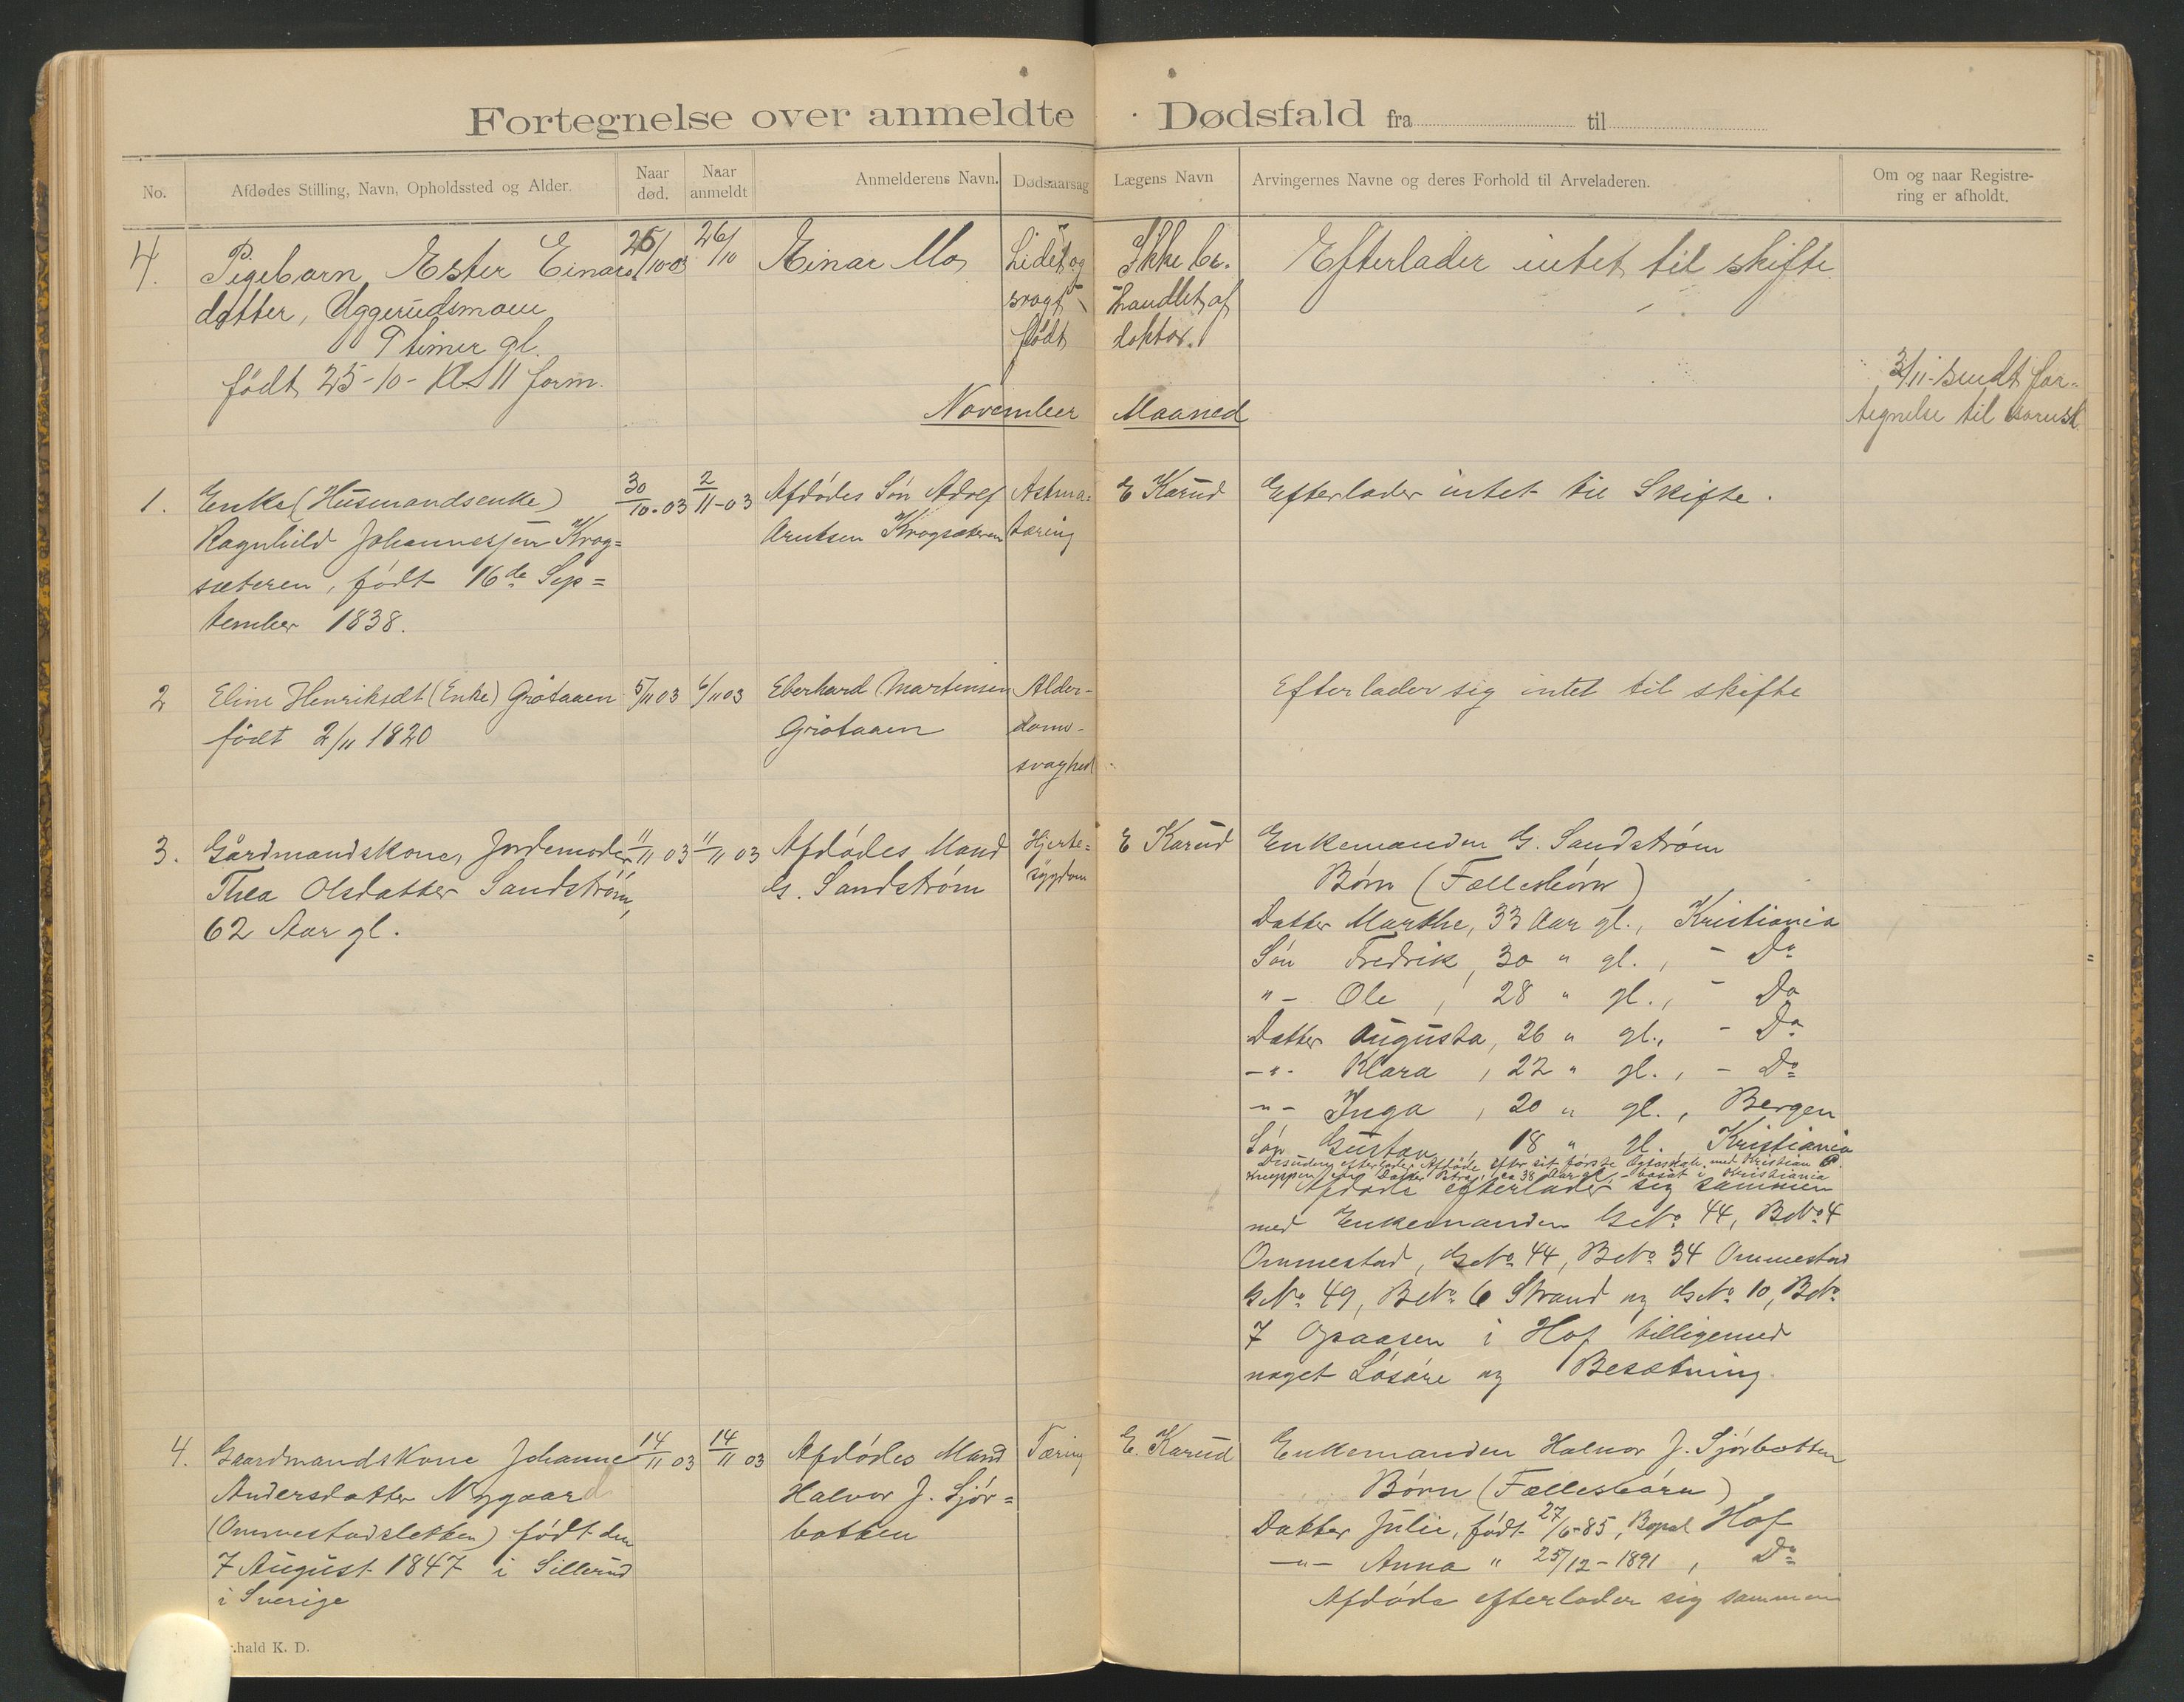 Fortegnelse over anmeldte Dødsfald fra til
No. Afdødes Stilling, Navn, Opholdssted og Alder. Naar død. Naar anmeldt Anmelderens Navn. Dødsaarsag Lægens Navn Arvingernes Navne og deres Forhold til Arveladeren. Om og naar Registre-
ring er afholdt.
4. Pigebarn Ester Einars 25/10 03 26/10 Einar Mo Lidet og Ikke be- Efterlader intet til skifte
datter, Uggerudsmoen svagt handlet af
9 timer gl. født doktor.
født 25-10- Kl 11 form.
3/11 sendt for-
tegnelse til
November Maaned
1. Enke (Husmandsenke) 30/10-03 2/11-03 Afdødes Søn Adolf Astma- E Karud Efterlader intet til Skifte.
Ragnhild Johannesen Krog= Arntsen Krogsæteren tæring
sæteren, født 16de Sep=
tember 1838.
2 Eline Henriksdt (Enke) Grøtaaen 5/11 03 6/11 03 Eberhard Martinsen Alder- Efterlader sig intet til skifte
født 2/11 1820 Grøtaaen doms-
svaghed
3. Gårdmandskone, Jordemoder 11/11 03 11/11 03 Afdødes Mand Hjerte= E Karud Enkemanden G. Sandstrøm
Thea Olsdatter Sandstrøm, G. Sandstrøm sygdom Børn (Fællesbørn)
62 Aar gl. Datter Marthe, 33 Aar gl., Kristiania
Søn Fredrik, 30 " gl., - Do
"- Ole, 28 " gl., - Do
Datter Augusta, 26 " gl., - Do
-"- Klara, 22 " gl., - Do
-"- Inga, 20 " gl., Bergen
Søn Gustav, 18 " gl., Kristiania
Desuden efterlader Afdøde efter sit første Ægteskab med Kristian
en Datter Petra, ca 38 Aar gl. - bosat i Kristiania
Afdøde efterlader sig sammen
med Enkemanden GNo 44, BNo 4
Ommestad, GNo 44, BNo 34 Ommestad
GNo 49, BNo 6 Strand og GNo 10, BNo
7 Opaasen i Hof tilligemed
noget Løsøre og Besætning.
4. Gaardmandskone Johanne 14/11 03 14/11 03 Afdødes Mand Tæring E. Karud Enkemanden Halvor J. Sjørbotten
Andersdatter Nygaard Halvor J. Sjør= Børn (Fællesbørn)
(Ommestadsletten) født den botten Datter Julie, født 27/6-85, Bopæl Hof
7 August 1847 i Sillerud -"- Anna " 25/12-1891, Do
i Sverige Afdøde efterlader sig sammen
hald K. D.